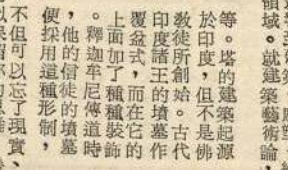 領域。就建築藝術論，
等。塔的建築起源
於印度，但不是佛
教徒所創始。古代
印度諸王的墳墓作
覆盆式，而在它的
上面加了種種裝飾
。釋迦牟尼傳道時
，他的信徒的墳墓
便採用這種形制，
不但可以忘了現實、